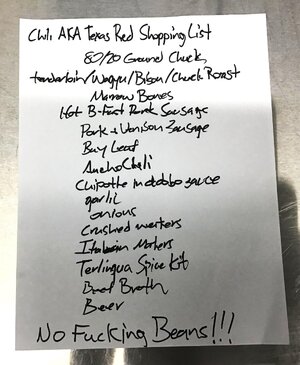 Chili AKA Texas Red Shopping List
80/20 Ground Chuck
tenderloin/Wagyu/Bison/Chuck Roast
Marrow Bones
Hot B-Fast Pork Sausage
Pork + Venison Sausage
Bay Leaf
Ancho Chili
Chipotle in adobo sauce
garlic
onions
Crushed
Italian
Terlingua Spice Kit
Beef Broth
Beer
No Fucking Beans!!!